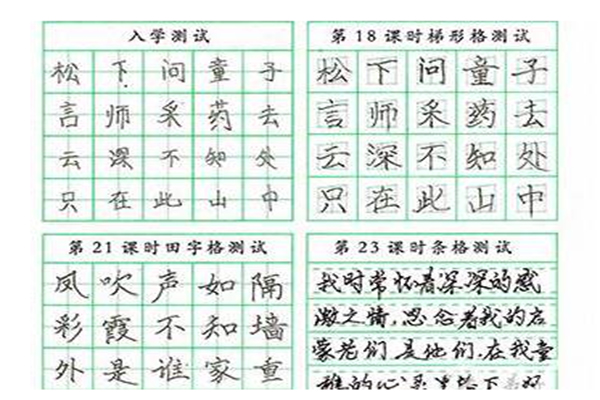 入学测试
松下问童子
言师采药去
云深不知处
只在此山中
第18课时梯形格测试
松下问童子
言师采药去
云深不知处
只在此山中
第21课时田字格测试
凤吹声如隔
彩霞不知墙
外是谁家重
第23课时条格测试
我时常怀着深深的感
激之情,思念着我的启
蒙老们是他们.在我童
雅的心